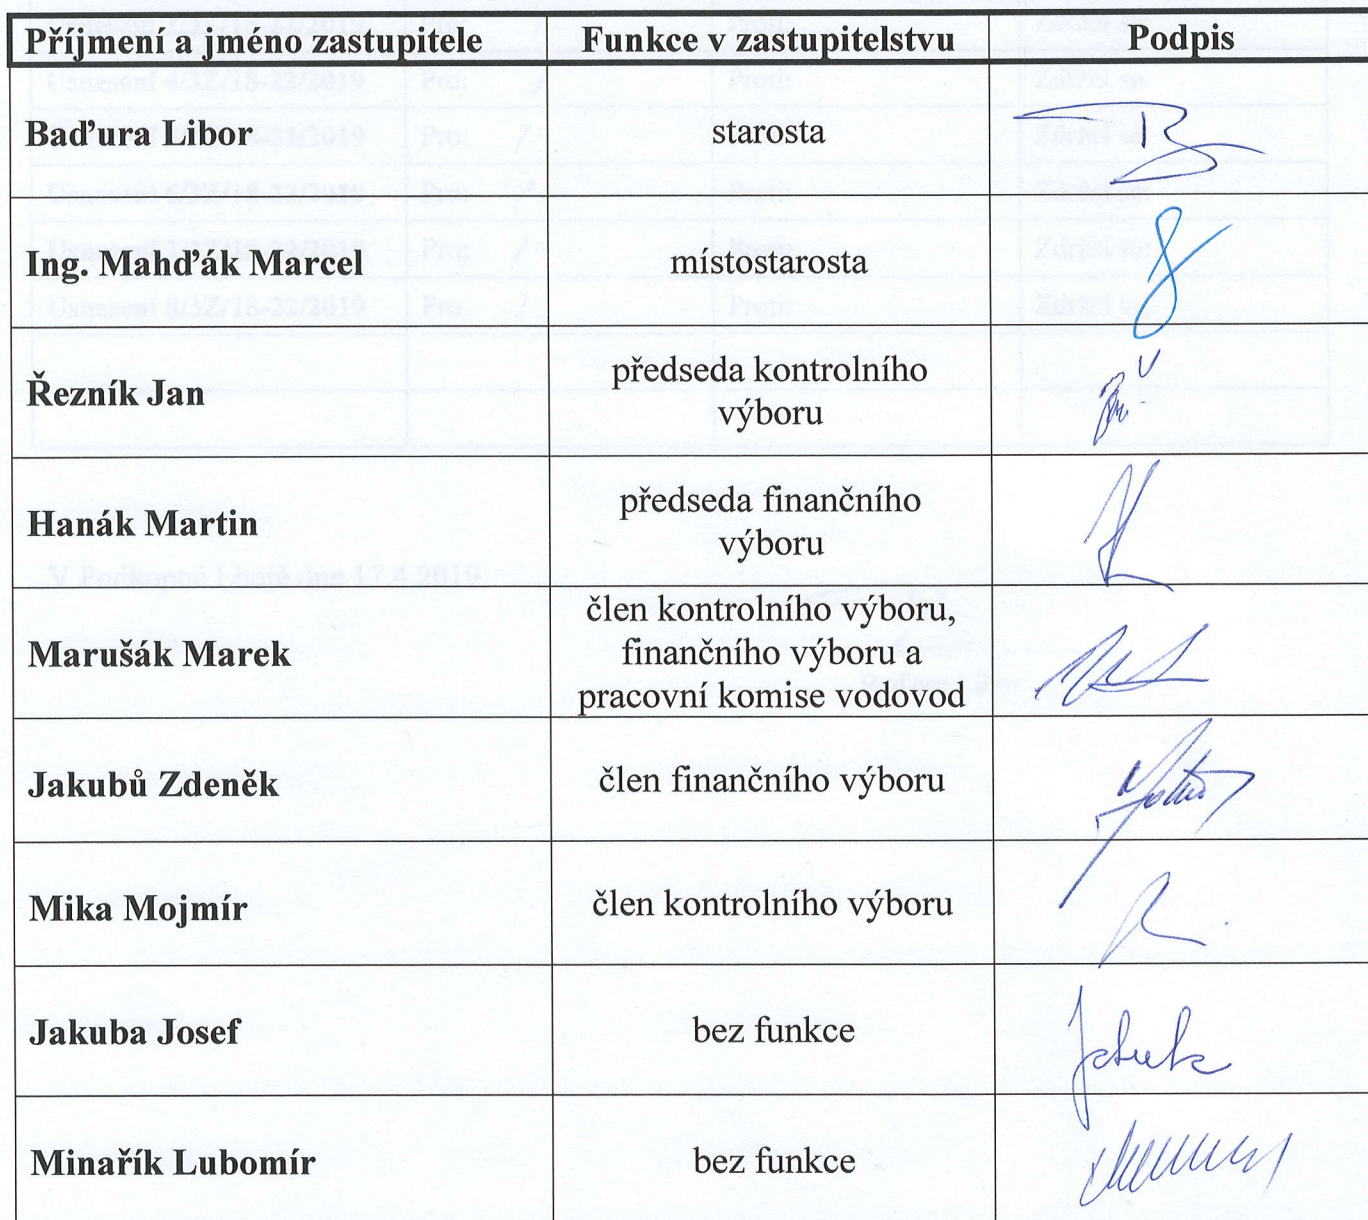 Příjmení a jméno zastupitele Funkce v zastupitelstvu Podpis
Baďura Libor starosta
Ing. Mahďák Marcel místostarosta
Řezník Jan předseda kontrolního
výboru
Hanák Martin předseda finančního
výboru
Marušák Marek člen kontrolního výboru,
finančního výboru a
pracovní komise vodovod
Jakubů Zdeněk člen finančního výboru
Mika Mojmír člen kontrolního výboru
Jakuba Josef bez funkce
Minařík Lubomír bez funkce